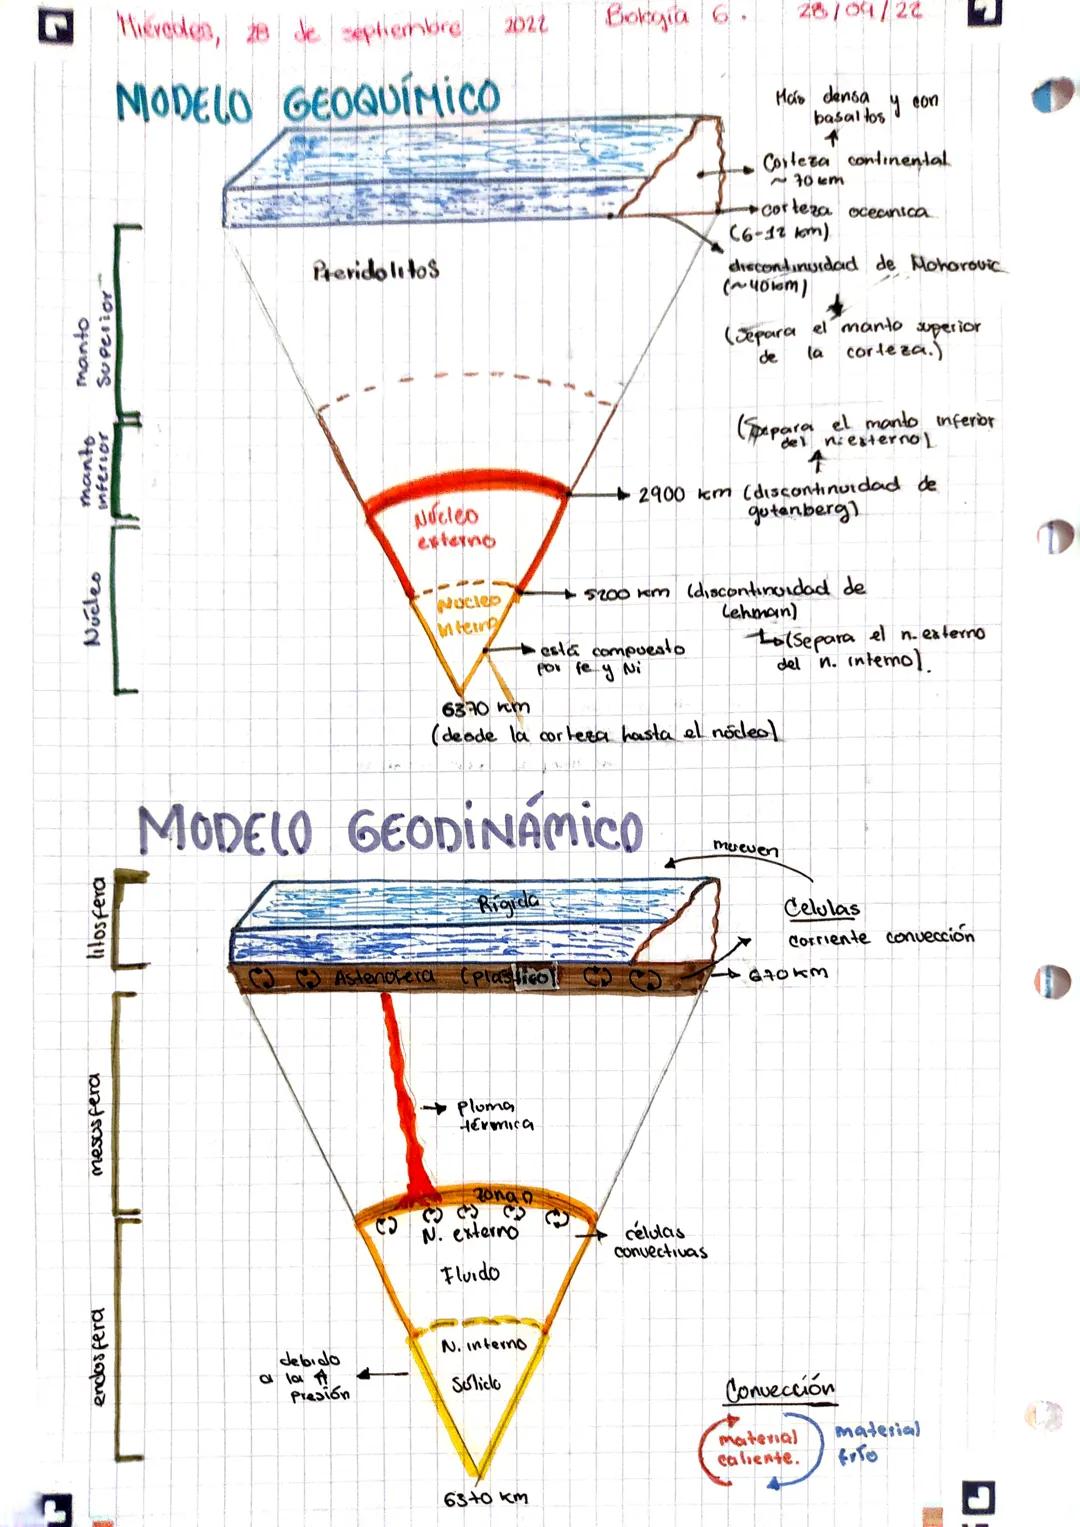 Miércoles, 28 de septiembre 2022 Biología 6. 28/09/22
MODELO GEOQUÍMICO
Más densa y con
basaltos
Corteza continental
~ 70 km
corteza oceanica
(6-12 km)
discontinuidad de Mohorovic
(~40km)
(Separa el manto superior
de la corteza.)
Peridolitos
manto
superior
manto
inferior
Núcleo
(Separa el manto inferior
del n. externo)
2900 km (discontinuidad de
gutenberg)
Núcleo
externo
5200 km (discontinuidad de
Lehman)
(Separa el n. externo
del n. interno).
Núcleo
Interno
está compuesto
por fe y Ni
6370 km
(desde la corteza hasta el núcleo)
MODELO GEODINÁMICO
mueven
litosfera
Rígida
Celulas
corriente convección
Astenosfera (plastico)
670 km
mesosfera
pluma
térmica
Zona D
N. externo
células
convectivas
Fluido
endosfera
N. interno
Sólido
debido
a la ⇑
presión
Convección
material
caliente.
material
frío
6370 km